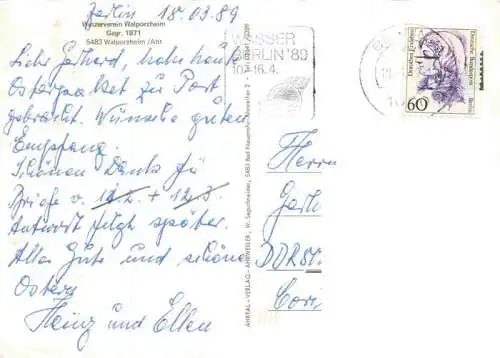 Berlin 18.03.89
Winzerverein Walporzheim
Gegr. 1871
5483 Walporzheim/Ahr
Lieber Gerhard, habe heute
Osterpaket zur Post
gebracht. Wünsche guten
Empfang.
Schönen Dank für
Briefe v. 14.2. + 12.3.
Antwort folgt später.
Alles Gute und schöne
Ostern
Heinz und Ellen
WASSER
BERLIN '89
10.-16.4.
AHRTAL-VERLAG - AHRWEILER, W. Segschneider, 5483 Bad Neuenahr-Ahrweiler 2
Deutsche Bundespost Berlin
60
Herrn
DDR